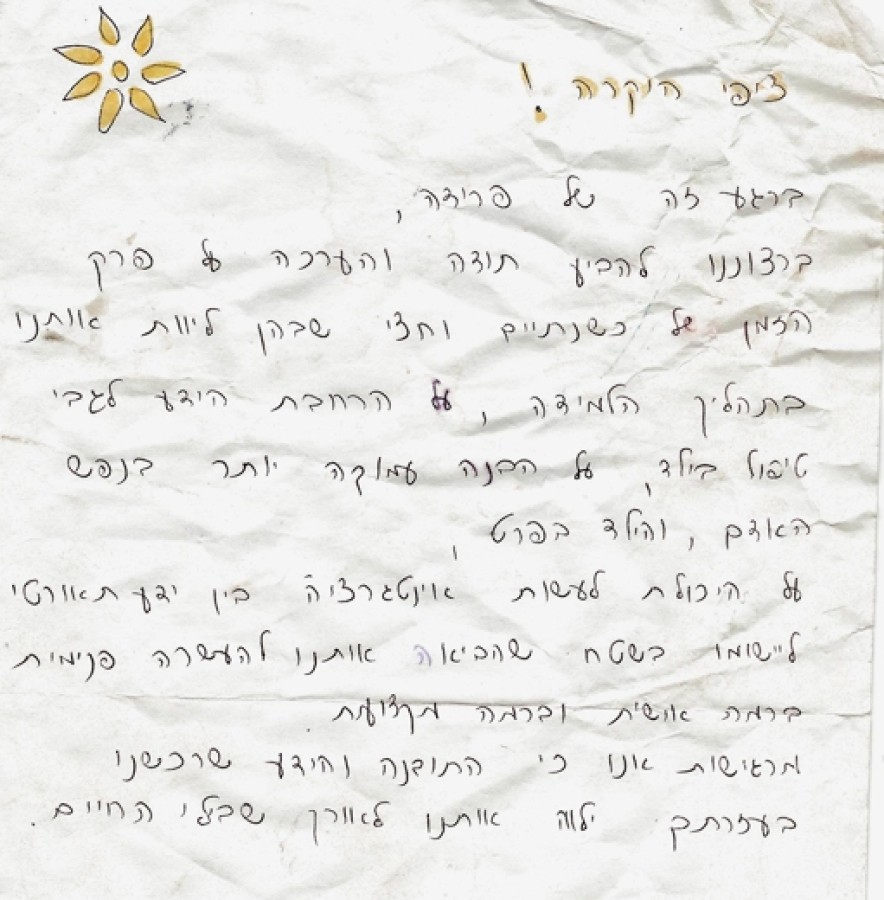 ציפי היקרה!
ברגע זה של פרידה,
ברצוננו להביע תודה והערכה על פרק
הזמן של כשנתיים וחצי שבהן ליוות אותנו
בתהליך הלמידה, על הרחבת הידע לגבי
טיפול בילד, על הבנה עמוקה יותר בנפש
האדם, והילד בפרט,
על היכולת לעשות אינטגרציה בין ידע תאורטי
ליישומו בשטח שהביאה אותנו להעשרה פנימית
ברמה אישית וברמה מקצועית.
מרגישות אנו כי התובנה והידע שרכשנו
בעזרתך ילוו אותנו לאורך שבילי החיים.